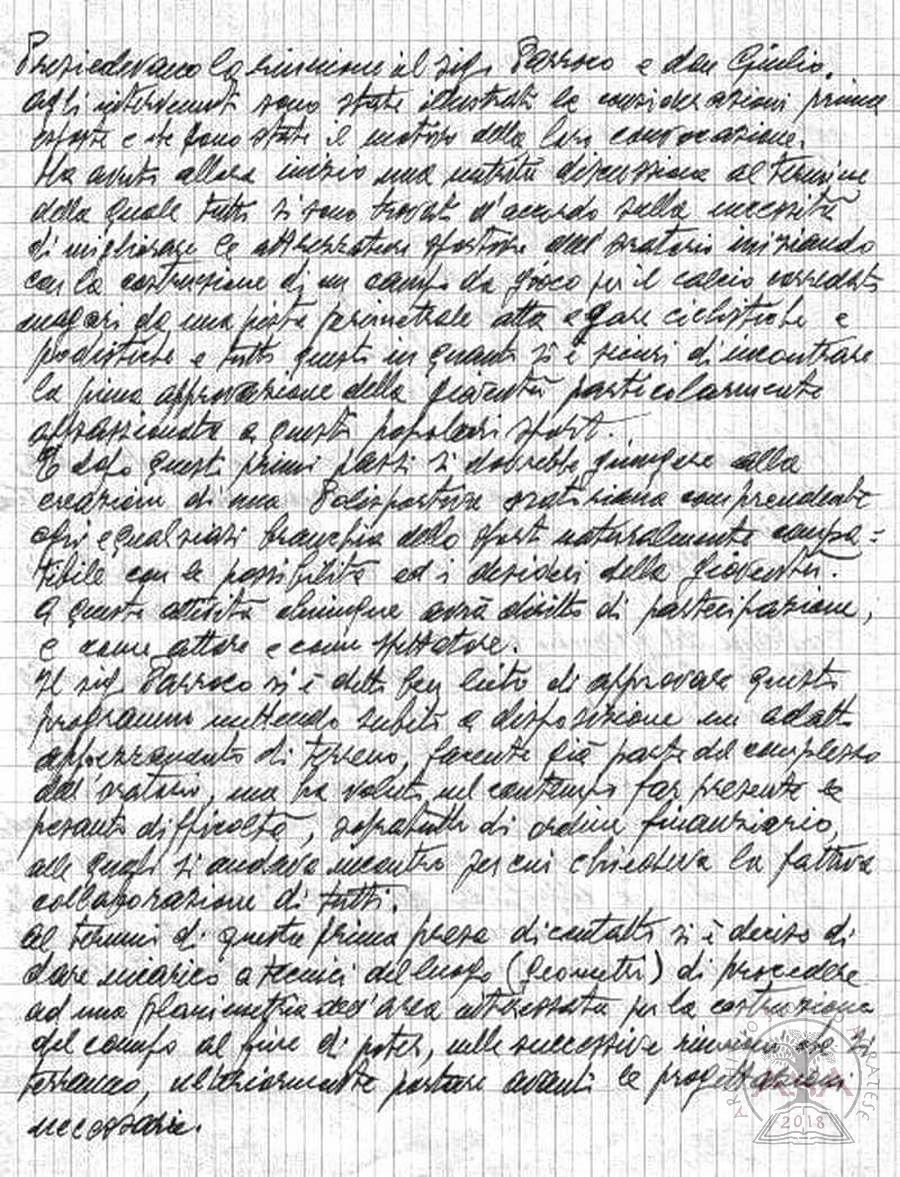 Presiedevano la riunione il sig. Parroco e don Giulio.
Agli intervenuti sono state illustrate le considerazioni prima
esposte e che sono state il motivo della loro convocazione.
Ha avuto allora inizio una nutrita discussione al termine
della quale tutti si sono trovati d'accordo sulla necessità
di migliorare le attrezzature sportive dell'oratorio iniziando
con la costruzione di un campo da gioco per il calcio corredato
magari da una pista perimetrale atta a gare ciclistiche e
podistiche e tutto questo in quanto si è sicuri di incontrare
la piena approvazione della gioventù particolarmente
appassionata a questi popolari sport.
E dopo questi primi passi si dovrebbe giungere alla
creazione di una Polisportiva oratoriana comprendente
ogni e qualsiasi branchia dello sport naturalmente compa=
tibile con le possibilità ed i desideri della gioventù.
A queste attività chiunque avrà diritto di partecipazione,
e come attore e come spettatore.
Il sig. Parroco si è detto ben lieto di approvare questo
programma mettendo subito a disposizione un adatto
appezzamento di terreno, facente già parte del complesso
dell'oratorio, ma ha voluto nel contempo far presente le
pesanti difficoltà, sopratutto di ordine finanziario,
alle quali si andava incontro per cui chiedeva la fattiva
collaborazione di tutti.
Al termine di questa prima presa di contatto si è deciso di
dare incarico a tecnici del luogo (geometri) di procedere
ad una planimetria dell'area interessata per la costruzione
del campo al fine di poter, nelle successive riunioni che si
terranno, ulteriormente portare avanti le progettazioni
necessarie.
2018